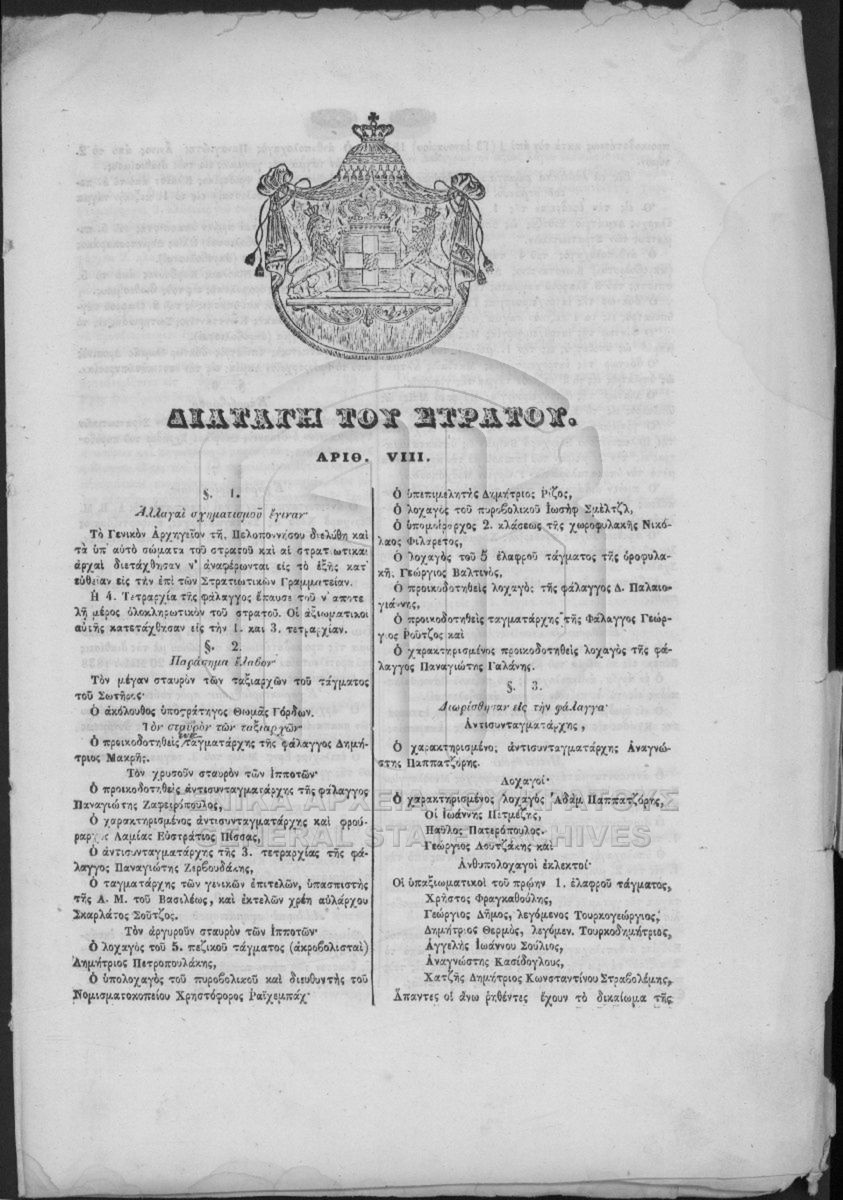 ΔΙΑΤΑΓΗ ΤΟΥ ΣΤΡΑΤΟΥ.
ΑΡΙΘ. VIII.
§. 1.
Ἀλλαγαὶ σχηματισμοῦ ἔγιναν·
Τὸ Γενικὸν Ἀρχηγεῖον τῆ, Πελοποννήσου διελύθη καὶ
τὰ ὑπ' αὐτὸ σώματα τοῦ στρατοῦ καὶ αἱ στρατιωτικαὶ
ἀρχαὶ διετάχθησαν ν' ἀναφέρωνται εἰς τὸ ἑξῆς κατ'
εὐθεῖαν εἰς τὴν ἐπὶ τῶν Στρατιωτικῶν Γραμματείαν.
Ἡ 4. Τετραρχία τῆς φάλαγγος ἔπαυσε τοῦ ν' ἀποτε
λῇ μέρος ὁλοκληρωτικὸν τοῦ στρατοῦ. Οἱ ἀξιωματικοὶ
αὐτῆς κατετάχθησαν εἰς τὴν 1. καὶ 3. τετραρχίαν.
§. 2.
Παράσημα ἔλαβον·
Τὸν μέγαν σταυρὸν τῶν ταξιαρχῶν τοῦ τάγματος
τοῦ Σωτῆρος·
Ὁ ἀκόλουθος ὑποστράτηγος Θωμᾶς Γόρδων.
Τὸν σταυρὸν τῶν ταξιαρχῶν·
Ὁ προικοδοτηθεὶς ταγματάρχης τῆς φάλαγγος Δημή-
τριος Μακρῆς.
Τὸν χρυσοῦν σταυρὸν τῶν Ἱπποτῶν·
Ὁ προικοδοτηθεὶς ἀντισυνταγματάρχης τῆς φάλαγγος
Παναγιώτης Ζαφειρόπουλος,
Ὁ χαρακτηρισμένος ἀντισυνταγματάρχης καὶ φρού-
ραρχος Λαμίας Εὐστράτιος Πίσσας,
Ὁ ἀντισυνταγματάρχης τῆς 3. τετραρχίας τῆς φά-
λαγγος Παναγιώτης Ζερβουδάκης,
Ὁ ταγματάρχης τῶν γενικῶν ἐπιτελῶν, ὑπασπιστὴς
τῆς Α. Μ. τοῦ Βασιλέως, καὶ ἐκτελῶν χρέη αὐλάρχου
Σκαρλάτος Σοῦτζος.
Τὸν ἀργυροῦν σταυρὸν τῶν Ἱπποτῶν·
Ὁ λοχαγὸς τοῦ 5. πεζικοῦ τάγματος (ἀκροβολισταὶ)
Δημήτριος Πετροπουλάκης,
Ὁ ὑπολοχαγὸς τοῦ πυροβολικοῦ καὶ διευθυντὴς τοῦ
Νομισματοκοπείου Χρηστόφορος Ῥαϊχεμπάχ·
Ὁ ὑπεπιμελητὴς Δημήτριος Ῥίζος,
Ὁ λοχαγὸς τοῦ πυροβολικοῦ Ἰωσὴφ Σμέλτζλ,
Ὁ ὑπομοίραρχος 2. κλάσεως τῆς χωροφυλακῆς Νικό-
λαος Φιλάρετος,
Ὁ λοχαγὸς τοῦ 5 ἐλαφροῦ τάγματος τῆς ὁροφυλα-
κῆ. Γεώργιος Βαλτινὸς,
Ὁ προικοδοτηθεὶς λοχαγὸς τῆς φάλαγγος Δ. Παλαιο-
γιάννης,
Ὁ προικοδοτηθεὶς ταγματάρχης τῆς Φάλαγγος Γεώρ-
γιος Ῥοῦτζος καὶ
Ὁ χαρακτηρισμένος προικοδοτηθεὶς λοχαγὸς τῆς φά-
λαγγος Παναγιώτης Γαλάνης.
§. 3.
Διωρίσθησαν εἰς τὴν φάλαγγα·
Ἀντισυνταγματάρχης,
Ὁ χαρακτηρισμένος ἀντισυνταγματάρχης Ἀναγνώ-
στης Παππατζόρης.
Λοχαγοί·
Ὁ χαρακτηρισμένος λοχαγὸς Ἀδὰμ Παππατζόρης,
Οἱ Ἰωάννης Πετμεζῆς,
Παῦλος Πατερόπουλος.
Γεώργιος Λουτζάκης καὶ
Ἀνθυπολοχαγοὶ ἐκλεκτοί·
Οἱ ὑπαξιωματικοὶ τοῦ πρῴην 1. ἐλαφροῦ τάγματος,
Χρῆστος Φραγκαθούλης,
Γεώργιος Δῆμος, λεγόμενος Τουρκογεώργιος,
Δημήτριος Θερμὸς, λεγόμεν. Τουρκοδημήτριος,
Ἀγγελῆς Ἰωάννου Σούλιος,
Ἀναγνώστης Κασίδογλους,
Χατζῆς Δημήτριος Κωνσταντίνου Στραβολέμης,
Ἅπαντες οἱ ἄνω ῥηθέντες ἔχουν τὸ δικαίωμα τῆς
ΓΕΝΙΚΑ ΑΡΧΕΙΑ ΤΟΥ ΚΡΑΤΟΥΣ
GENERAL STATE ARCHIVES